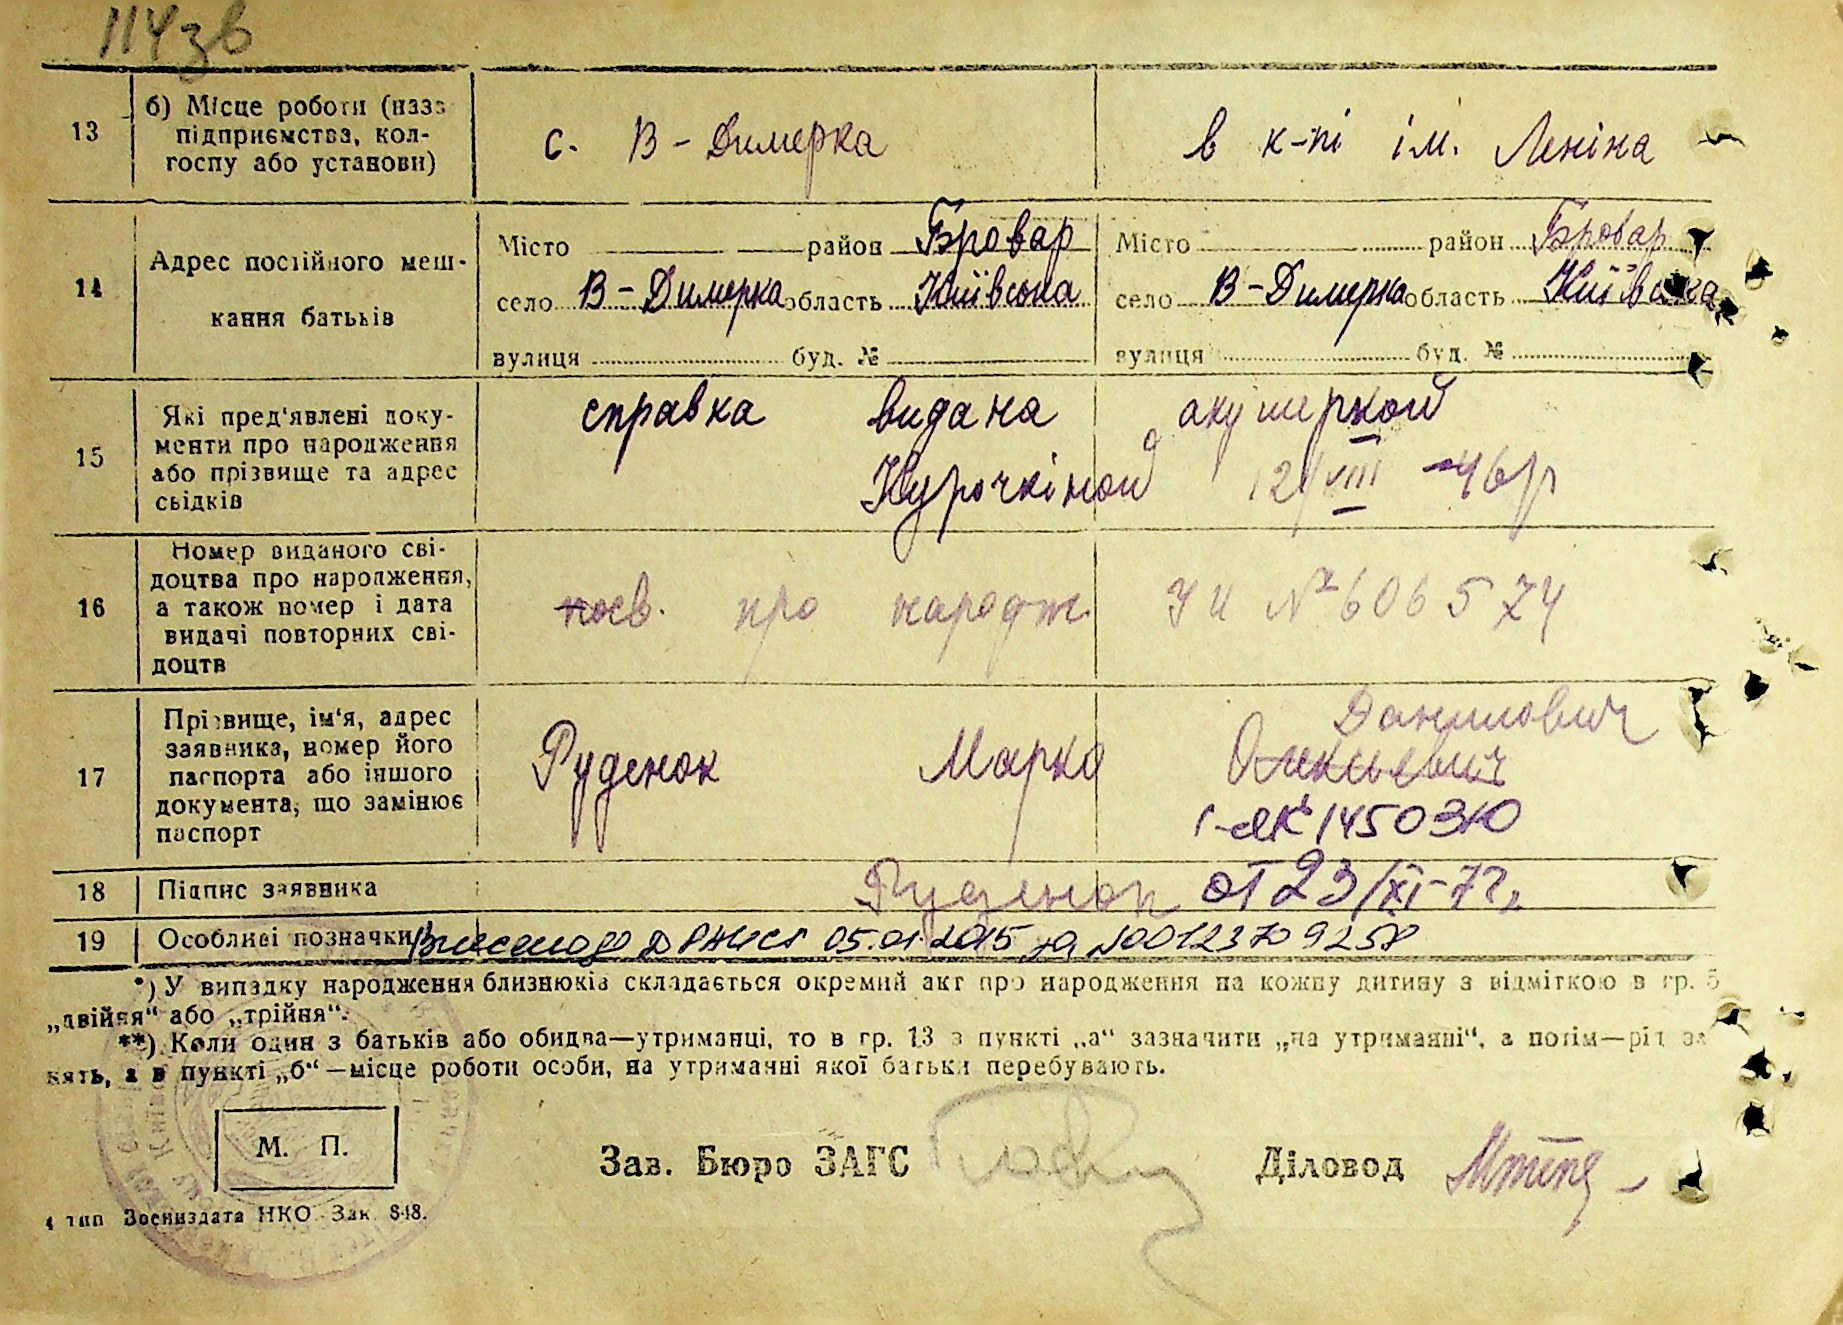 114зв
13
б) Місце роботи (назв
підприємства, кол-
госпу або установи)
с. В-Димерка
в к-пі ім. Леніна
14
Адрес постійного меш-
кання батьків
Місто район Бровар
село В-Димерка область Київська
вулиця буд. №
Місто район Бровар
село В-Димерка область Київська
вулиця буд. №
15
Які пред'явлені доку-
менти про народження
або прізвище та адрес
свідків
справка видана акушеркой
Курочкіной 12/VIII-46р
16
Номер виданого сві-
доцтва про народження,
а також номер і дата
видачі повторних сві-
доцтв
посв. про народж. УИ № 606574
17
Прізвище, ім'я, адрес
заявника, номер його
паспорта або іншого
документа, що замінює
паспорт
Данилович
Руденок Марко Олексьевич
1450310
18
Підпис заявника
Руденок от 23/XI-72г.
19
Особливі позначки
Внесено до ДРАЦСГ 05.01.2015 за №00123709258
*) У випадку народження близнюків складається окремий акт про народження на кожну дитину з відміткою в гр. 5
„двійня“ або „трійня“.
**) Коли один з батьків або обидва—утриманці, то в гр. 13 в пункті „а“ зазначити „на утриманні“, а потім—рід за-
нять, а в пункті „б“—місце роботи особи, на утриманні якої батьки перебувають.
М. П.
Зав. Бюро ЗАГС
Діловод
4 тип Воениздата НКО Зак. 848.